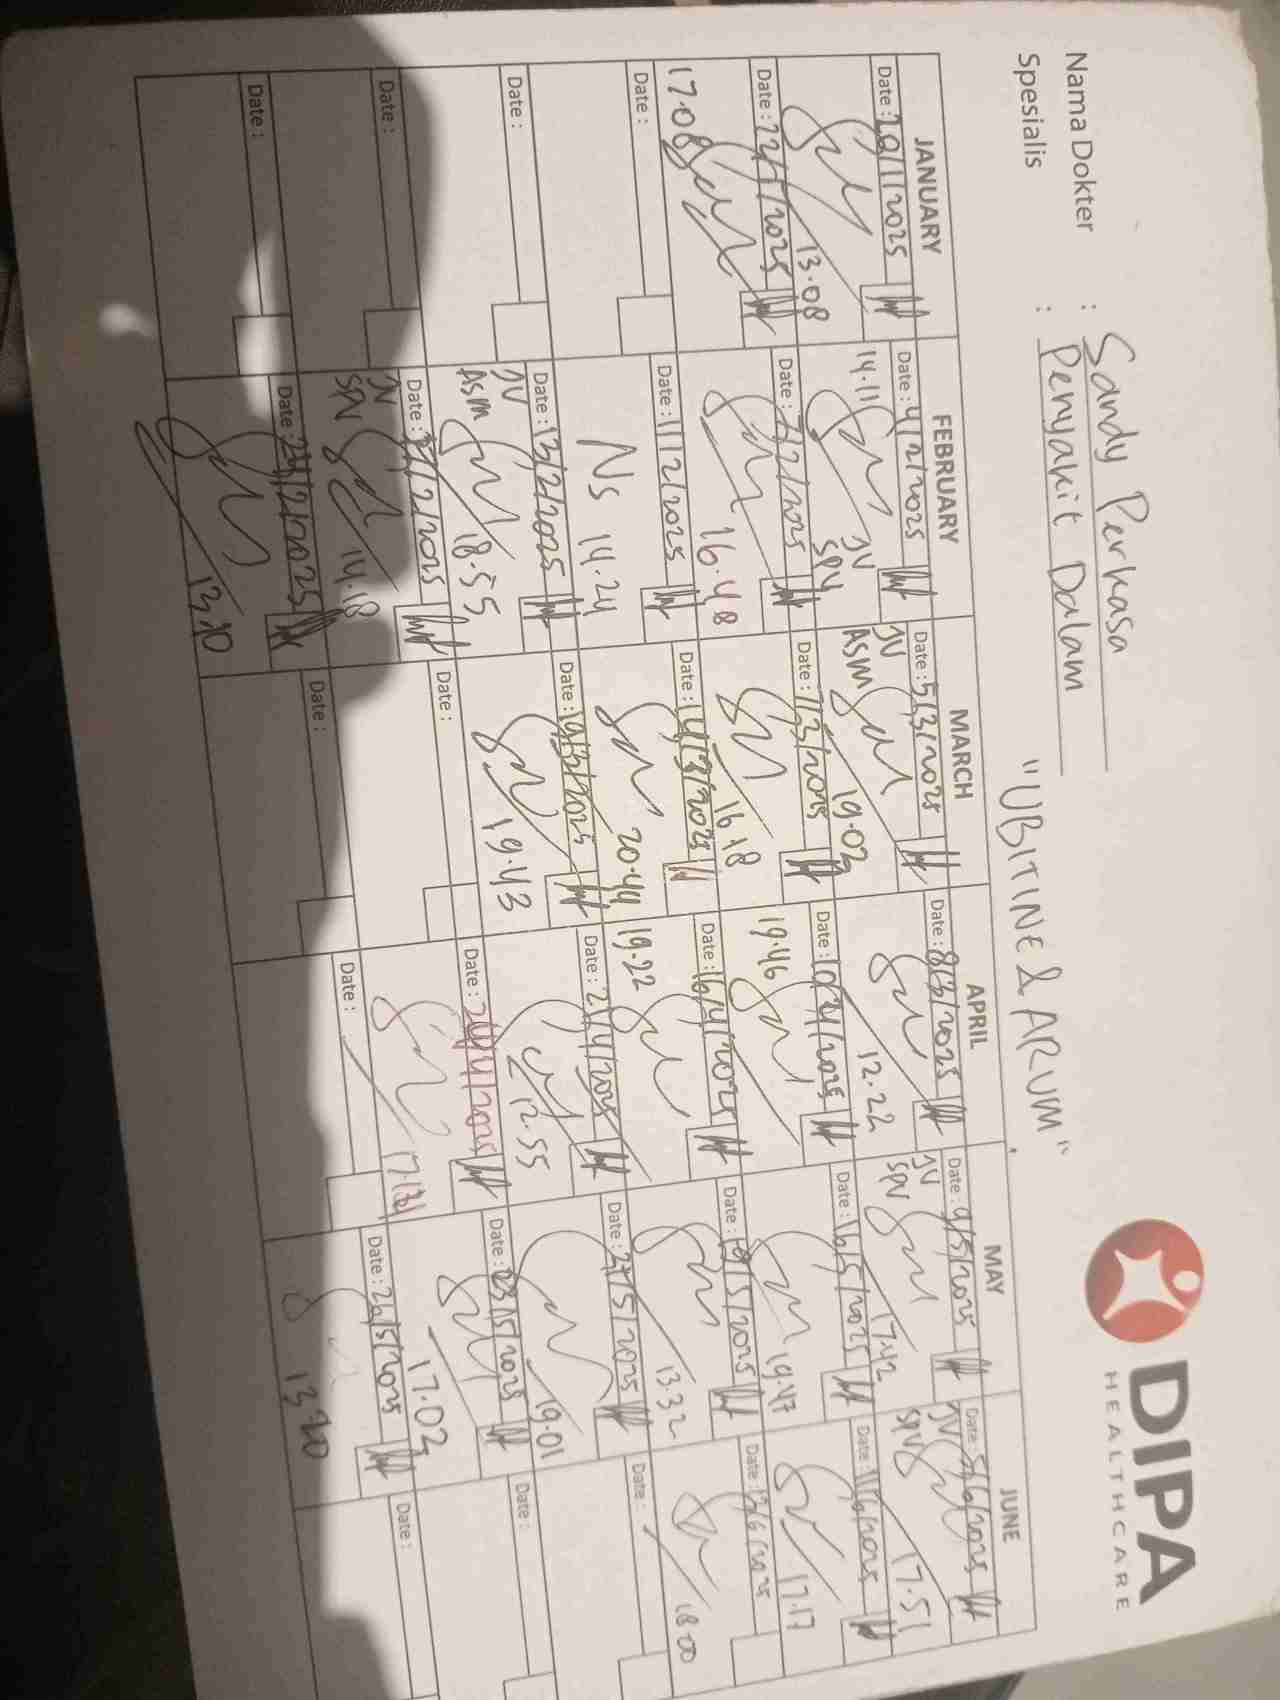 Nama Dokter : Sandy Perkasa
Spesialis : Penyakit Dalam
"UBITINE & ARUM"
DIPA
HEALTHCARE
JANUARY
Date : 20/1/2025
13.08
Date : 22/1/2025
17.08
Date :
Date :
Date :
Date :
FEBRUARY
Date : 4/2/2025
14.11
JV
SPV
Date : 7/2/2025
16.48
Date : 11/2/2025
Ns 14.24
Date : 13/2/2025
JV
ASM
18.55
Date : /2/2025
JV
SPV
14.18
Date : 24/2/2025
MARCH
Date : 5/3/2025
JV
ASM
19.02
Date : 7/3/2025
16.18
Date : 14/3/2025
20.44
Date : 19/3/2025
19.43
Date :
Date :
APRIL
Date : 8/3/2025
12.22
Date : 10/4/2025
19.46
Date : 16/4/2025
19.22
Date : 21/4/2025
12.55
Date : /4/2025
Date :
MAY
Date : 9/5/2025
JV
SPV
17.42
Date : 16/5/2025
19.47
Date : 19/5/2025
13.32
Date : 21/5/2025
19.01
Date : 23/5/2025
17.02
Date : 26/5/2025
JUNE
Date : 5/6/2025
JV
SPV
17.51
Date : 11/6/2025
17.17
Date : /6/2025
18.00
Date :
Date :
Date :